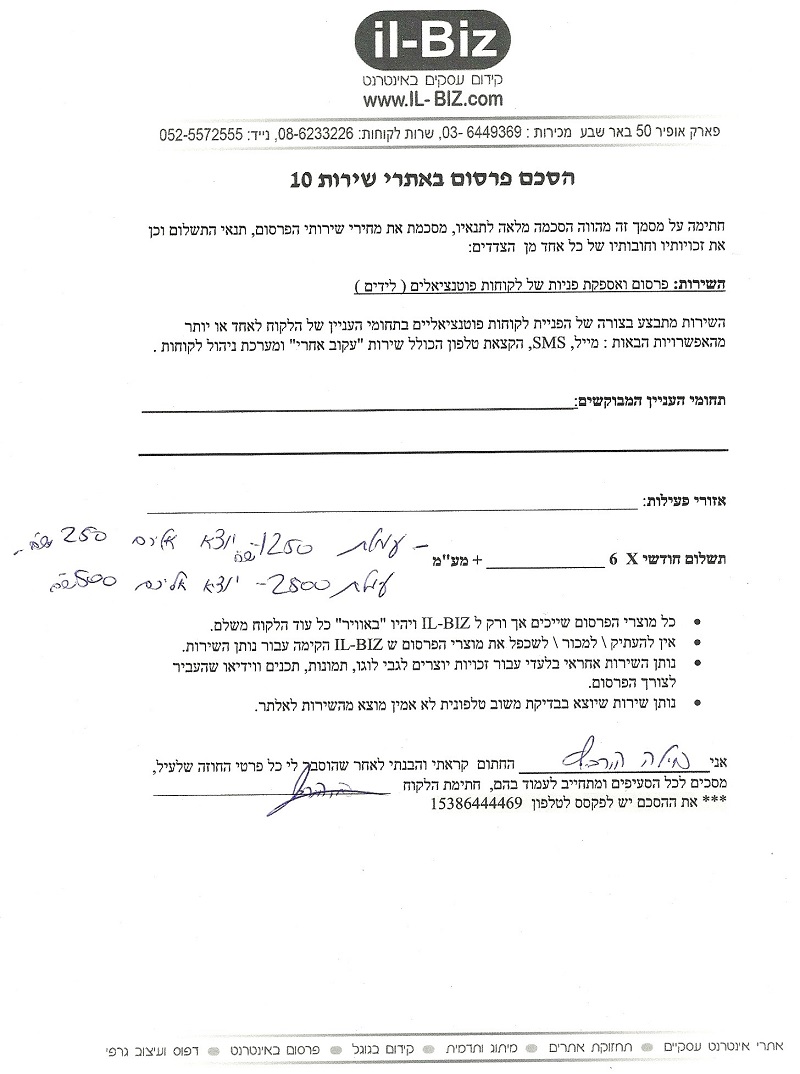 il-Biz
קידום עסקים באינטרנט
www.IL-BIZ.com
פארק אופיר 50 באר שבע מכירות : 03- 6449369, שרות לקוחות: 08-6233226, נייד: 052-5572555
הסכם פרסום באתרי שירות 10
חתימה על מסמך זה מהווה הסכמה מלאה לתנאיו, מסכמת את מחירי שירותי הפרסום, תנאי התשלום וכן
את זכויותיו וחובותיו של כל אחד מן הצדדים:
השירות: פרסום ואספקת פניות של לקוחות פוטנציאלים ( לידים )
השירות מתבצע בצורה של הפניית לקוחות פוטנציאליים בתחומי העניין של הלקוח לאחד או יותר
מהאפשרויות הבאות : מייל, SMS, הקצאת טלפון הכולל שירות "עקוב אחרי" ומערכת ניהול לקוחות .
תחומי העניין המבוקשים:
אזורי פעילות:
תשלום חודשי X 6 + מע"מ
- עמלת 1250 יוצא אליכם 250
עמלת 2500- יוצא אליכם 500
• כל מוצרי הפרסום שייכים אך ורק ל IL-BIZ ויהיו "באוויר" כל עוד הלקוח משלם.
• אין להעתיק \ למכור \ לשכפל את מוצרי הפרסום ש IL-BIZ הקימה עבור נותן השירות.
• נותן השירות אחראי בלעדי עבור זכויות יוצרים לגבי לוגו, תמונות, תכנים ווידיאו שהעביר
לצורך הפרסום.
• נותן שירות שיוצא בבדיקת משוב טלפונית לא אמין מוצא מהשירות לאלתר.
אני החתום קראתי והבנתי לאחר שהוסבר לי כל פרטי החוזה שלעיל,
מסכים לכל הסעיפים ומתחייב לעמוד בהם, חתימת הלקוח
*** את ההסכם יש לפקסס לטלפון 15386444469
אתרי אינטרנט עסקיים תחזוקת אתרים מיתוג ותדמית קידום בגוגל פרסום באינטרנט דפוס ועיצוב גרפי